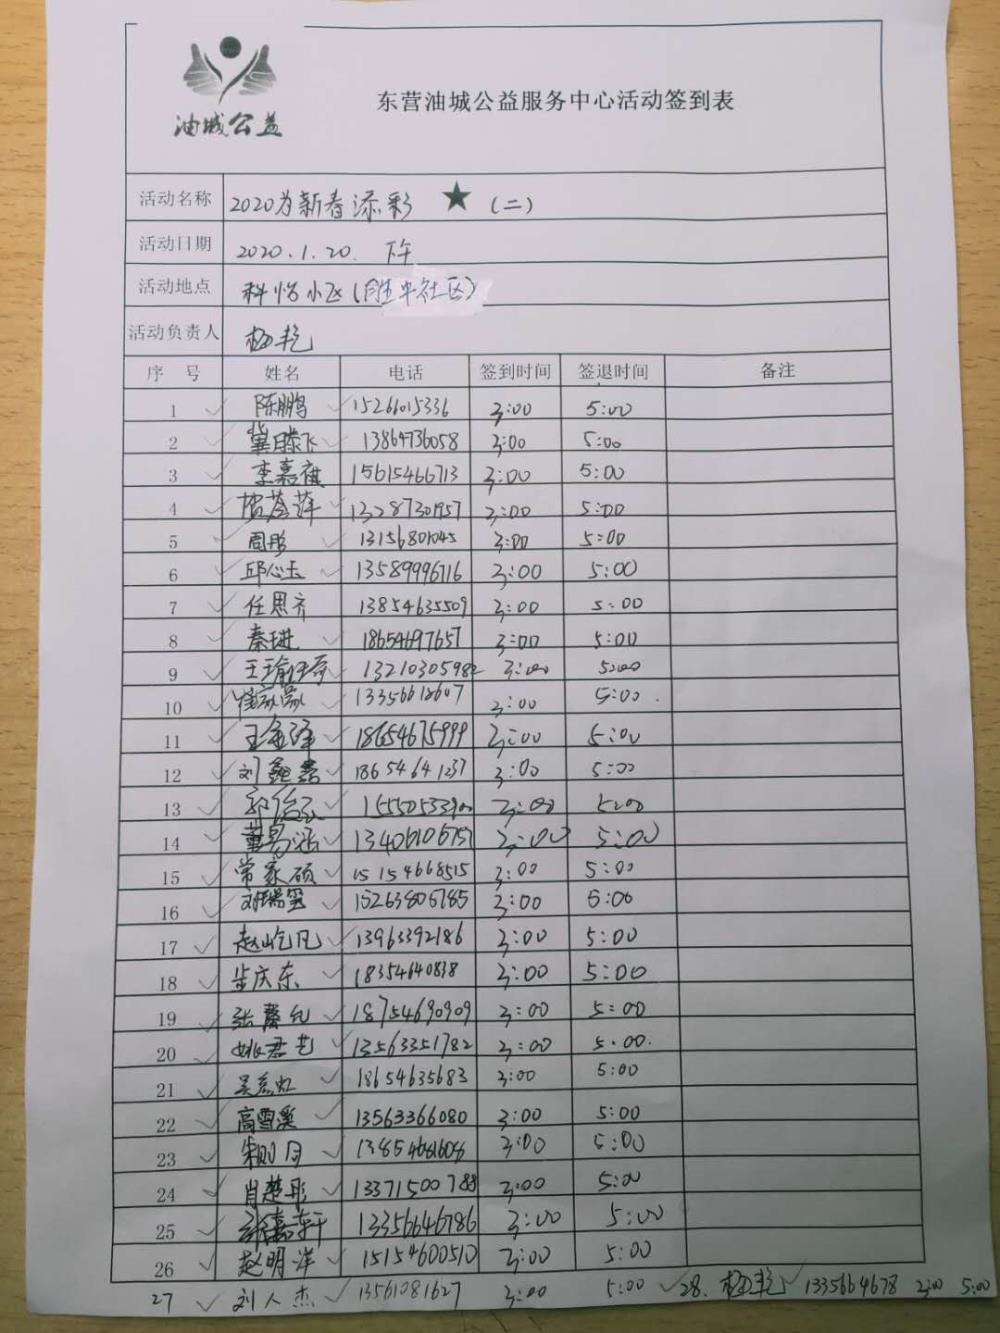 油城公益
东营油城公益服务中心活动签到表
活动名称 2020为新春添彩 ★ (二)
活动日期 2020.1.20. 下午
活动地点 科怡小区(胜中社区)
活动负责人 杨乾
序 号 姓名 电话 签到时间 签退时间 备注
1 陈鹏 15266015336 3:00 5:00
2 冀腾飞 13864736058 3:00 5:00
3 李嘉祺 15615466713 3:00 5:00
4 3:00 5:00
5 周彤 13156801045 3:00 5:00
6 邱心玉 13589996716 3:00 5:00
7 任思齐 13854635509 3:00 5:00
8 秦进 18654697657 3:00 5:00
9 13210305982 3:00 5:00
10 13356618607 3:00 5:00
11 18654675999 3:00 5:00
12 刘鑫磊 18654641237 3:00 5:00
13 3:00 5:00
14 董易泓 13406106757 3:00 5:00
15 常家硕 15154668515 3:00 5:00
16 刘瑞玺 15263806785 3:00 5:00
17 赵屹凡 13963392186 3:00 5:00
18 步庆东 18354640838 3:00 5:00
19 张馨允 18754690909 3:00 5:00
20 姚君艺 13563351782 3:00 5:00.
21 18654635683 3:00 5:00
22 高雪溪 13563366080 3:00 5:00
23 3:00 5:00
24 肖楚彤 13371500788 3:00 5:00
25 张嘉轩 13356646786 3:00 5:00
26 赵明洋 15154600510 3:00 5:00
27 刘人杰 13561081627 3:00 5:00 28. 杨乾 1335664678 3:00 5:00